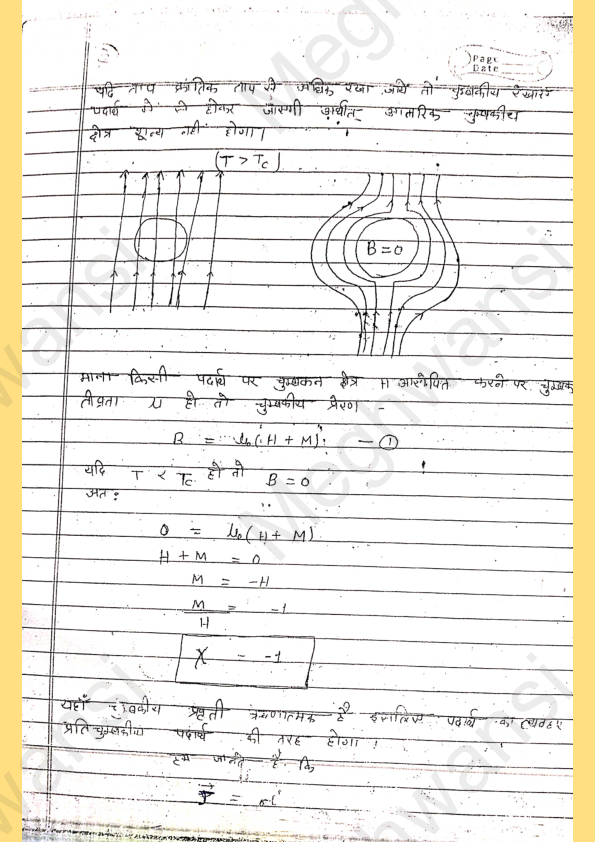 Page
Date
यदि ताप क्रांतिक ताप से अधिक रखा जाये तो चुम्बकीय रेखाएं
पदार्थ में से होकर जाएगी अर्थात् आन्तरिक चुम्बकीय
क्षेत्र शून्य नहीं होगा।
(T > Tc)
B = 0
माना किसी पदार्थ पर चुम्बकन क्षेत्र H आरोपित करने पर चुम्बक
तीव्रता M हो तो चुम्बकीय प्रेरण -
B = μ₀(H + M) — ①
यदि T < Tc हो तो B = 0
अतः
0 = μ₀(H + M)
H + M = 0
M = -H
M/H = -1
χ = -1
यहाँ चुंबकीय प्रवृती ऋणात्मक है इसलिए पदार्थ का व्यवहार
प्रतिचुम्बकीय पदार्थ की तरह होगा।
हम जानते है कि
Meghwansi
Meghwansi